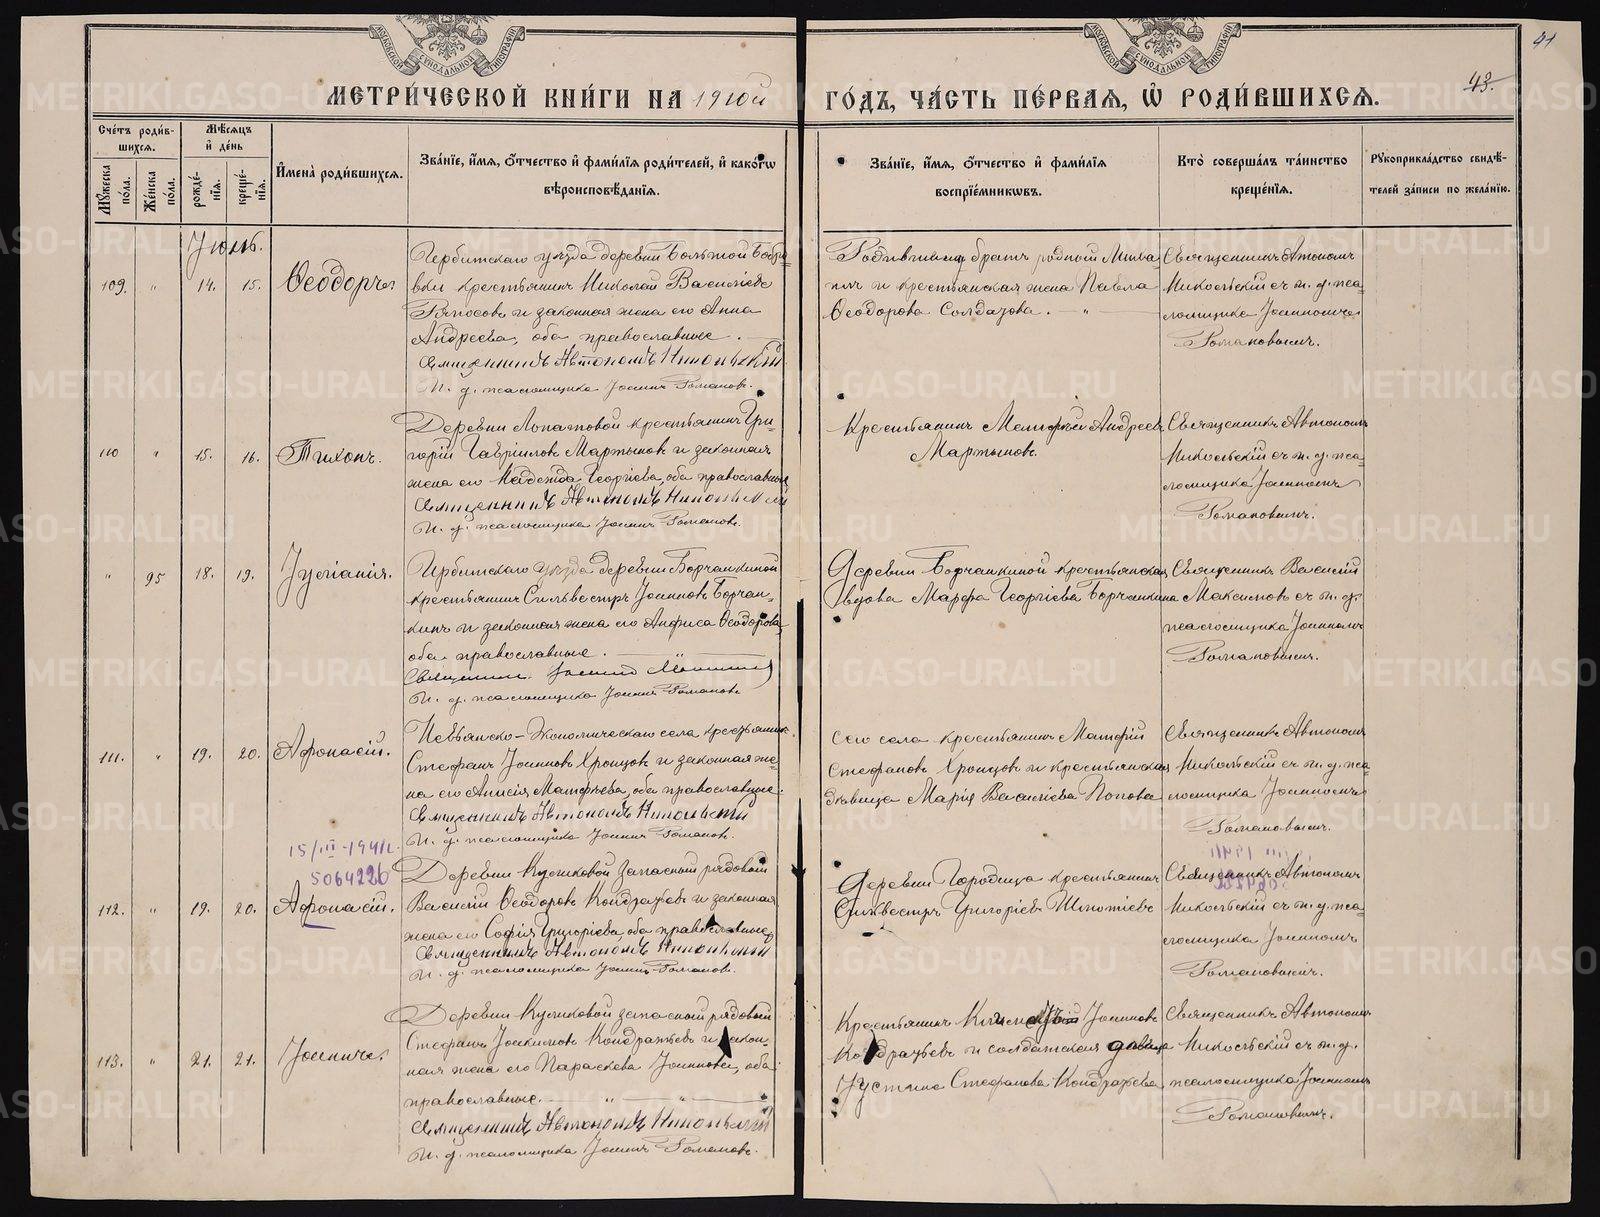 МОСКОВСКОЙ СѴНОДАЛЬНОЙ ТИПОГРАФІИ
МОСКОВСКОЙ СѴНОДАЛЬНОЙ ТИПОГРАФІИ
41
43.
МЕТРИ́ЧЕСКОЙ КНИ́ГИ НА 1910й
ГО́ДЪ, ЧА́СТЬ ПЕ́РВАЯ, Ѡ РОДИ́ВШИХСЯ.
Сче́тъ роди́вшихся.
Му́жеска по́ла.
Же́нска по́ла.
Мѣ́сяцъ и де́нь
рожде́нія.
креще́нія.
Имена̀ роди́вшихся.
Зва́ніе, и́мя, о́тчество и фами́лія роди́телей, и како́гѡ
вѣроисповѣ́данія.
Зва́ніе, и́мя, о́тчество и фами́лія
воспріе́мникѡвъ.
Кто̀ соверша́лъ та́инство
креще́нія.
Рукоприкла́дство свидѣ́-
телей за́писи по жела́нію.
Іюль.
109. " 14. 15. Ѳеодоръ.
Ирбитскаго уѣзда деревни Большой Бобро-
вки крестьянинъ Николай Васильевъ
и законная жена его Анна
Андреева, оба православные.
Священникъ Автономъ Никольскій
И. д. псаломщика Іоаннъ Романовъ.
Родившемуся братъ родной
и крестьянская жена Павла
Ѳеодорова Солдатова. — " —
Священникъ Автономъ
Никольскій съ и. д. пса-
ломщика Іоанномъ
Романовымъ.
110 " 15. 16. Тихонъ.
Деревни Лопатовой крестьянинъ Гри-
горій Гавріиловъ Мартыновъ и законная
жена его Надежда Георгіева, оба православные
Священникъ Автономъ Никольскій
И. д. псаломщика Іоаннъ Романовъ.
Крестьянинъ Матѳей Андреевъ
Мартыновъ.
Священникъ Автономъ
Никольскій съ и. д. пса-
ломщика Іоанномъ
Романовымъ.
" 95 18. 19. Іуліанія.
Ирбитскаго уѣзда деревни Борчанкиной
крестьянинъ Сильвестръ Іоанновъ Борчан-
кинъ и законная жена его Анфиса Ѳеодорова,
оба православные.
Священникъ
И. д. псаломщика Іоаннъ Романовъ
Деревни Борчанкиной крестьянская
вдова Марѳа Георгіева Борчанкина
Священникъ Василій
Максимовъ съ и. д.
псаломщика Іоанномъ
Романовымъ.
111. " 19. 20. Аѳонасій.
Невьянско-Экономическаго села крестьянинъ
Стефанъ Іоанновъ Хронцовъ и законная же-
на его Анисія Матѳеева, оба православные.
Священникъ Автономъ Никольскій
И. д. псаломщика Іоаннъ Романовъ.
сего села крестьянинъ Матѳій
Стефановъ Хронцовъ и крестьянская
дѣвица Марія Васильева Попова
Священникъ Автономъ
Никольскій съ и. д. пса-
ломщика Іоанномъ
Романовымъ.
15/III-1941г.
5064226
112. " 19. 20. Аѳонасій.
Деревни Куликовой запасный рядовой
Василій Ѳеодоровъ Кондратьевъ и законная
жена его Софія Григоріева, оба православные
Священникъ Автономъ Никольскій
И. д. псаломщика Іоаннъ Романовъ.
Деревни Городища крестьянинъ
Сильвестръ Григоріевъ
Священникъ Автономъ
Никольскій съ и. д. пса-
ломщика Іоанномъ
Романовымъ.
113. " 21. 21. Іоаннъ.
Деревни Куликовой запасный рядовой
Стефанъ Іоакимовъ Кондратьевъ и закон-
ная жена его Параскева Іоаннова, оба
православные. — " — " —
Священникъ Автономъ Никольскій
И. д. псаломщика Іоаннъ Романовъ.
Крестьянинъ Іоанновъ
Кондратьевъ и солдатская дѣвица
Іустина Стефанова Кондратьева
Священникъ Автономъ
Никольскій съ и. д.
псаломщика Іоанномъ
Романовымъ.
METRIKI.GASO-URAL.RU